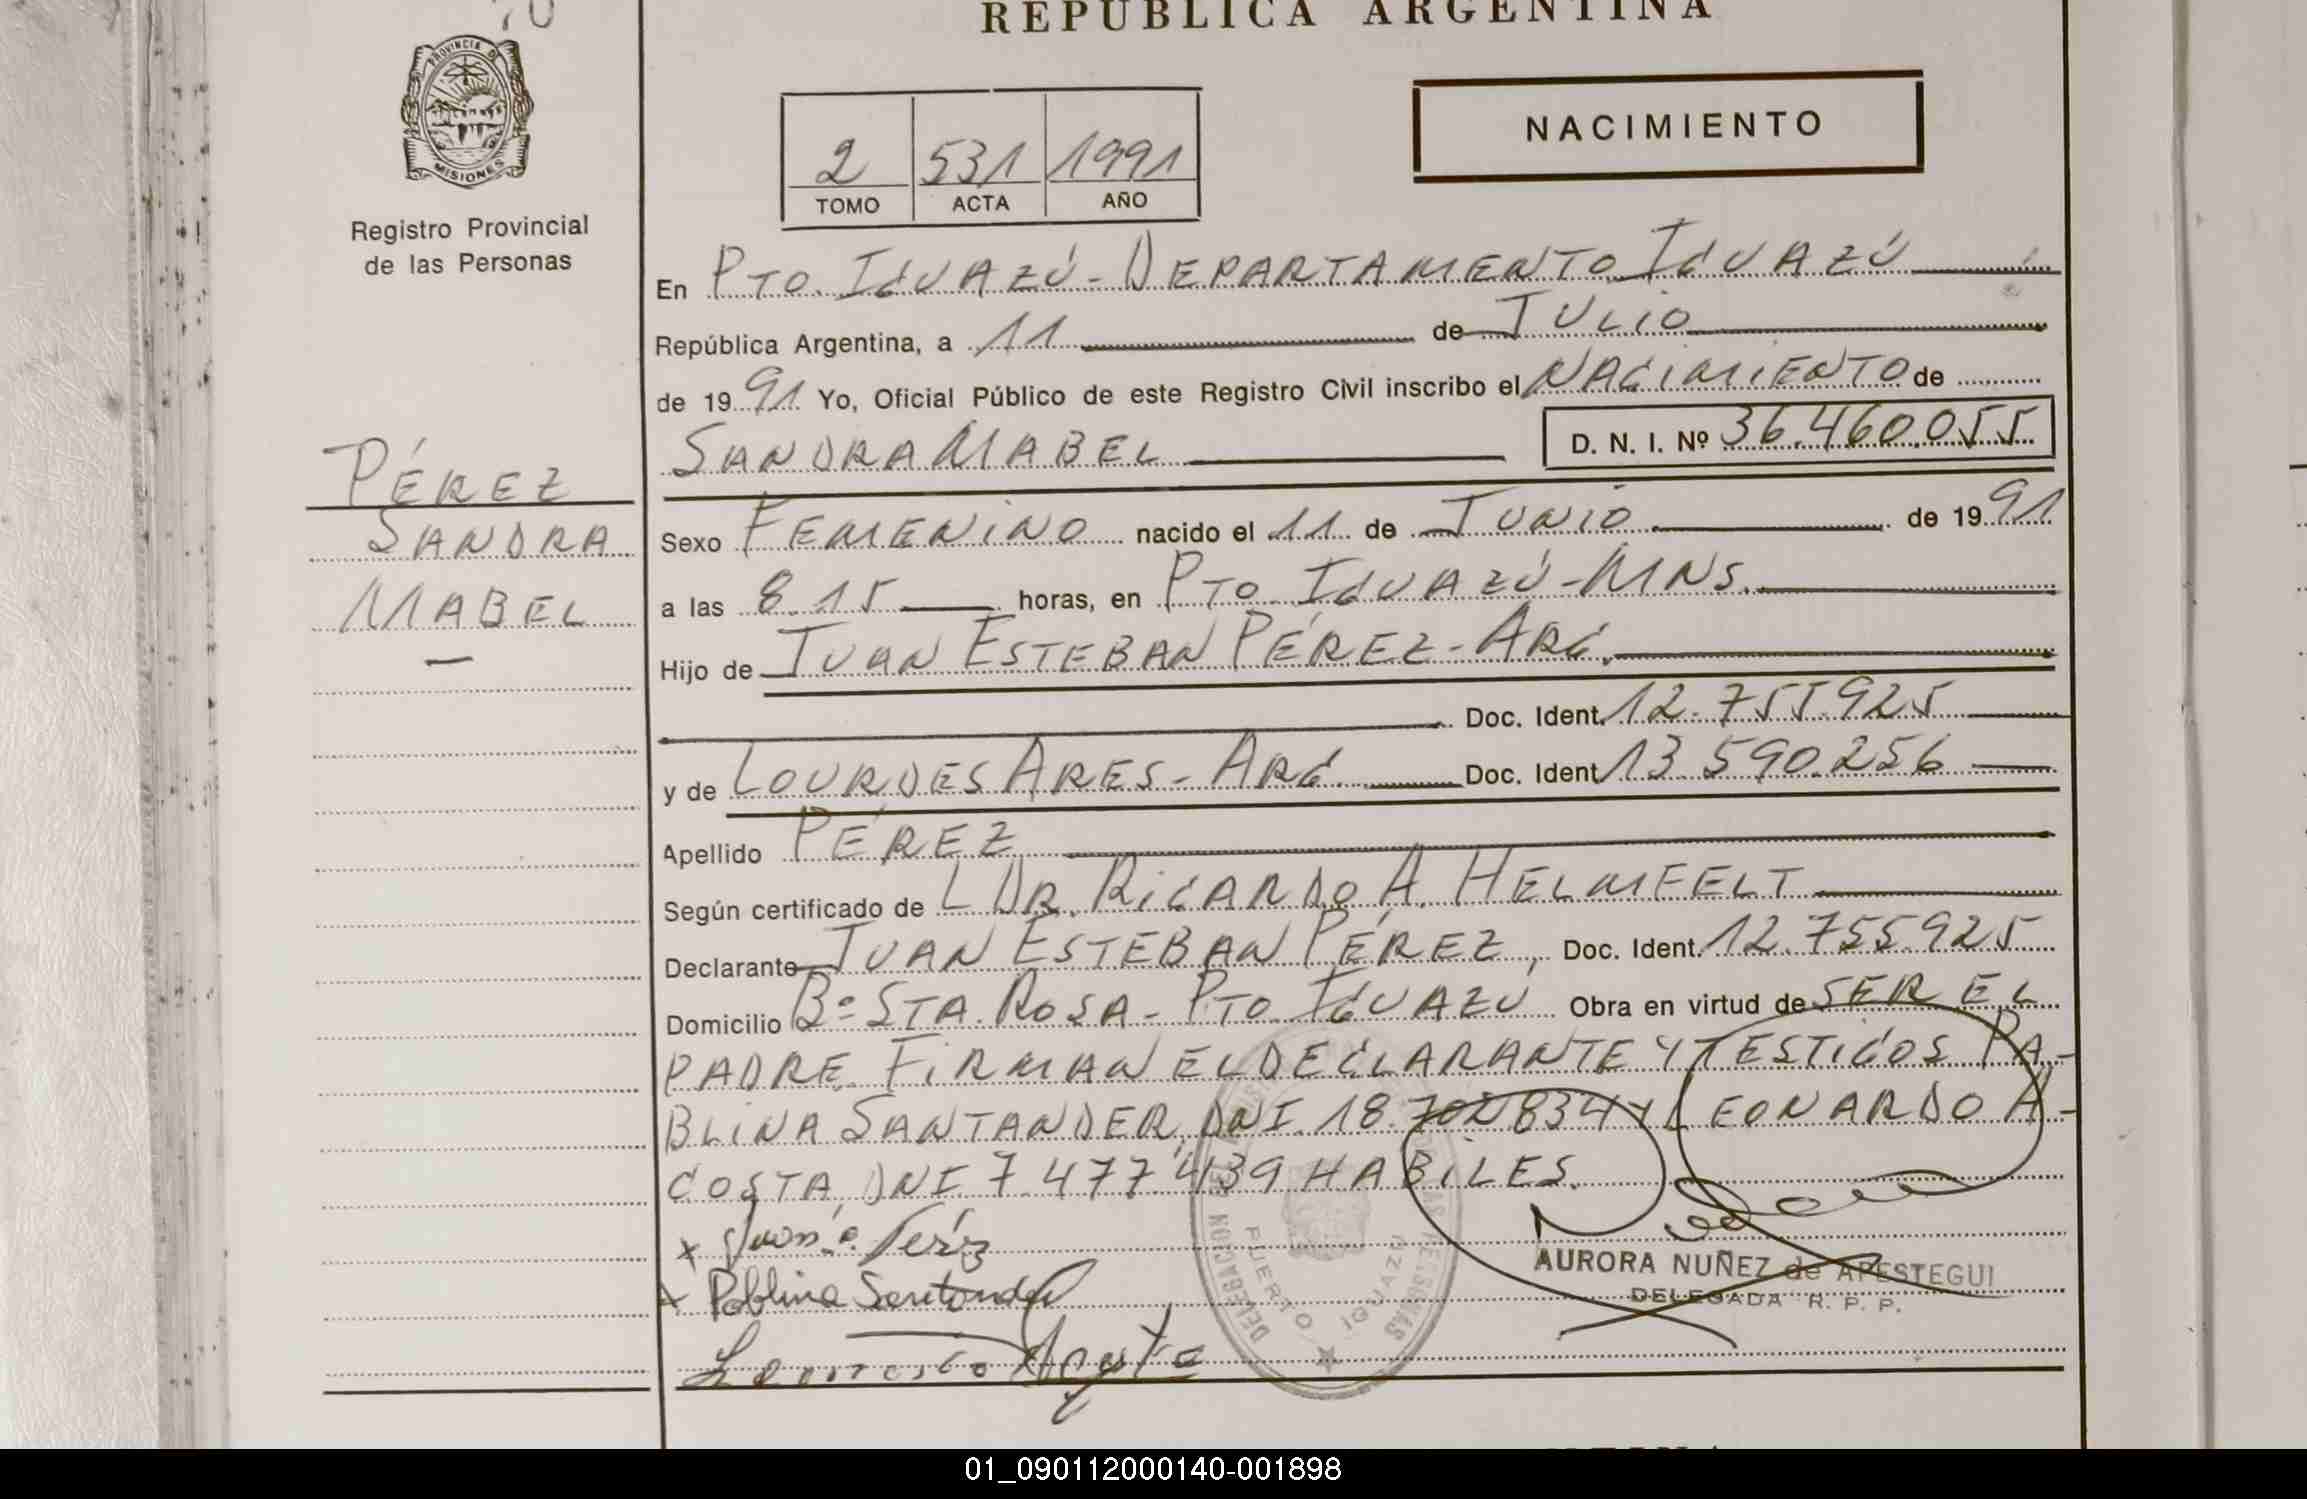 REPUBLICA ARGENTINA
PROVINCIA DE
MISIONES
Registro Provincial
de las Personas
2 531 1991
TOMO ACTA AÑO
NACIMIENTO
En PTO. IGUAZÚ - DEPARTAMENTO IGUAZÚ
República Argentina, a 11 de JULIO
de 1991 Yo, Oficial Público de este Registro Civil inscribo el NACIMIENTO de
SANDRA MABEL D. N. I. Nº 36.460.055
PÉREZ
SANDRA
MABEL
Sexo FEMENINO nacido el 11 de JUNIO de 1991
a las 8.15 horas, en PTO. IGUAZÚ - MNS.
Hijo de JUAN ESTEBAN PÉREZ - ARG.
Doc. Ident. 12.755.925
y de LOURDES ARES - ARG. Doc. Ident. 13.590.256
Apellido PÉREZ
Según certificado de L DR. RICARDO A. HELMFELT
Declarante JUAN ESTEBAN PÉREZ, Doc. Ident. 12.755.925
Domicilio Bº STA. ROSA - PTO. IGUAZÚ Obra en virtud de SER EL
PADRE. FIRMAN EL DECLARANTE Y TESTIGOS PA-
BLINA SANTANDER, DNI. 18.702.834 Y LEONARDO A-
COSTA, DNI. 7.477.439 HABILES.
x Juan E. Peréz
x Pablina Santander
AURORA NUÑEZ de APESTEGUI
DELEGADA R. P. P.
DELEGACION
PUERTO IGUAZU
01_090112000140-001898